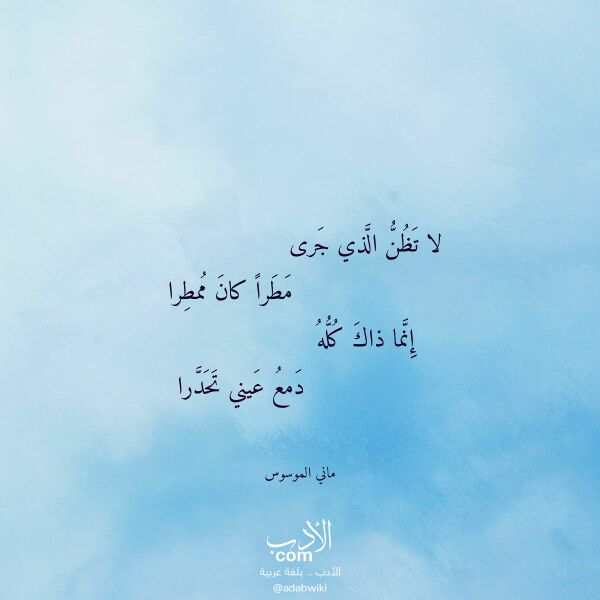 لا تَظُنُّ الَّذي جَرى
مَطَراً كانَ مُمطِرا
إِنَّما ذاكَ كُلُّهُ
دَمعُ عَيني تَحَدَّرا
ماني الموسوس
الأدب
com
الأدب .. بلغة عربية
@adabwiki